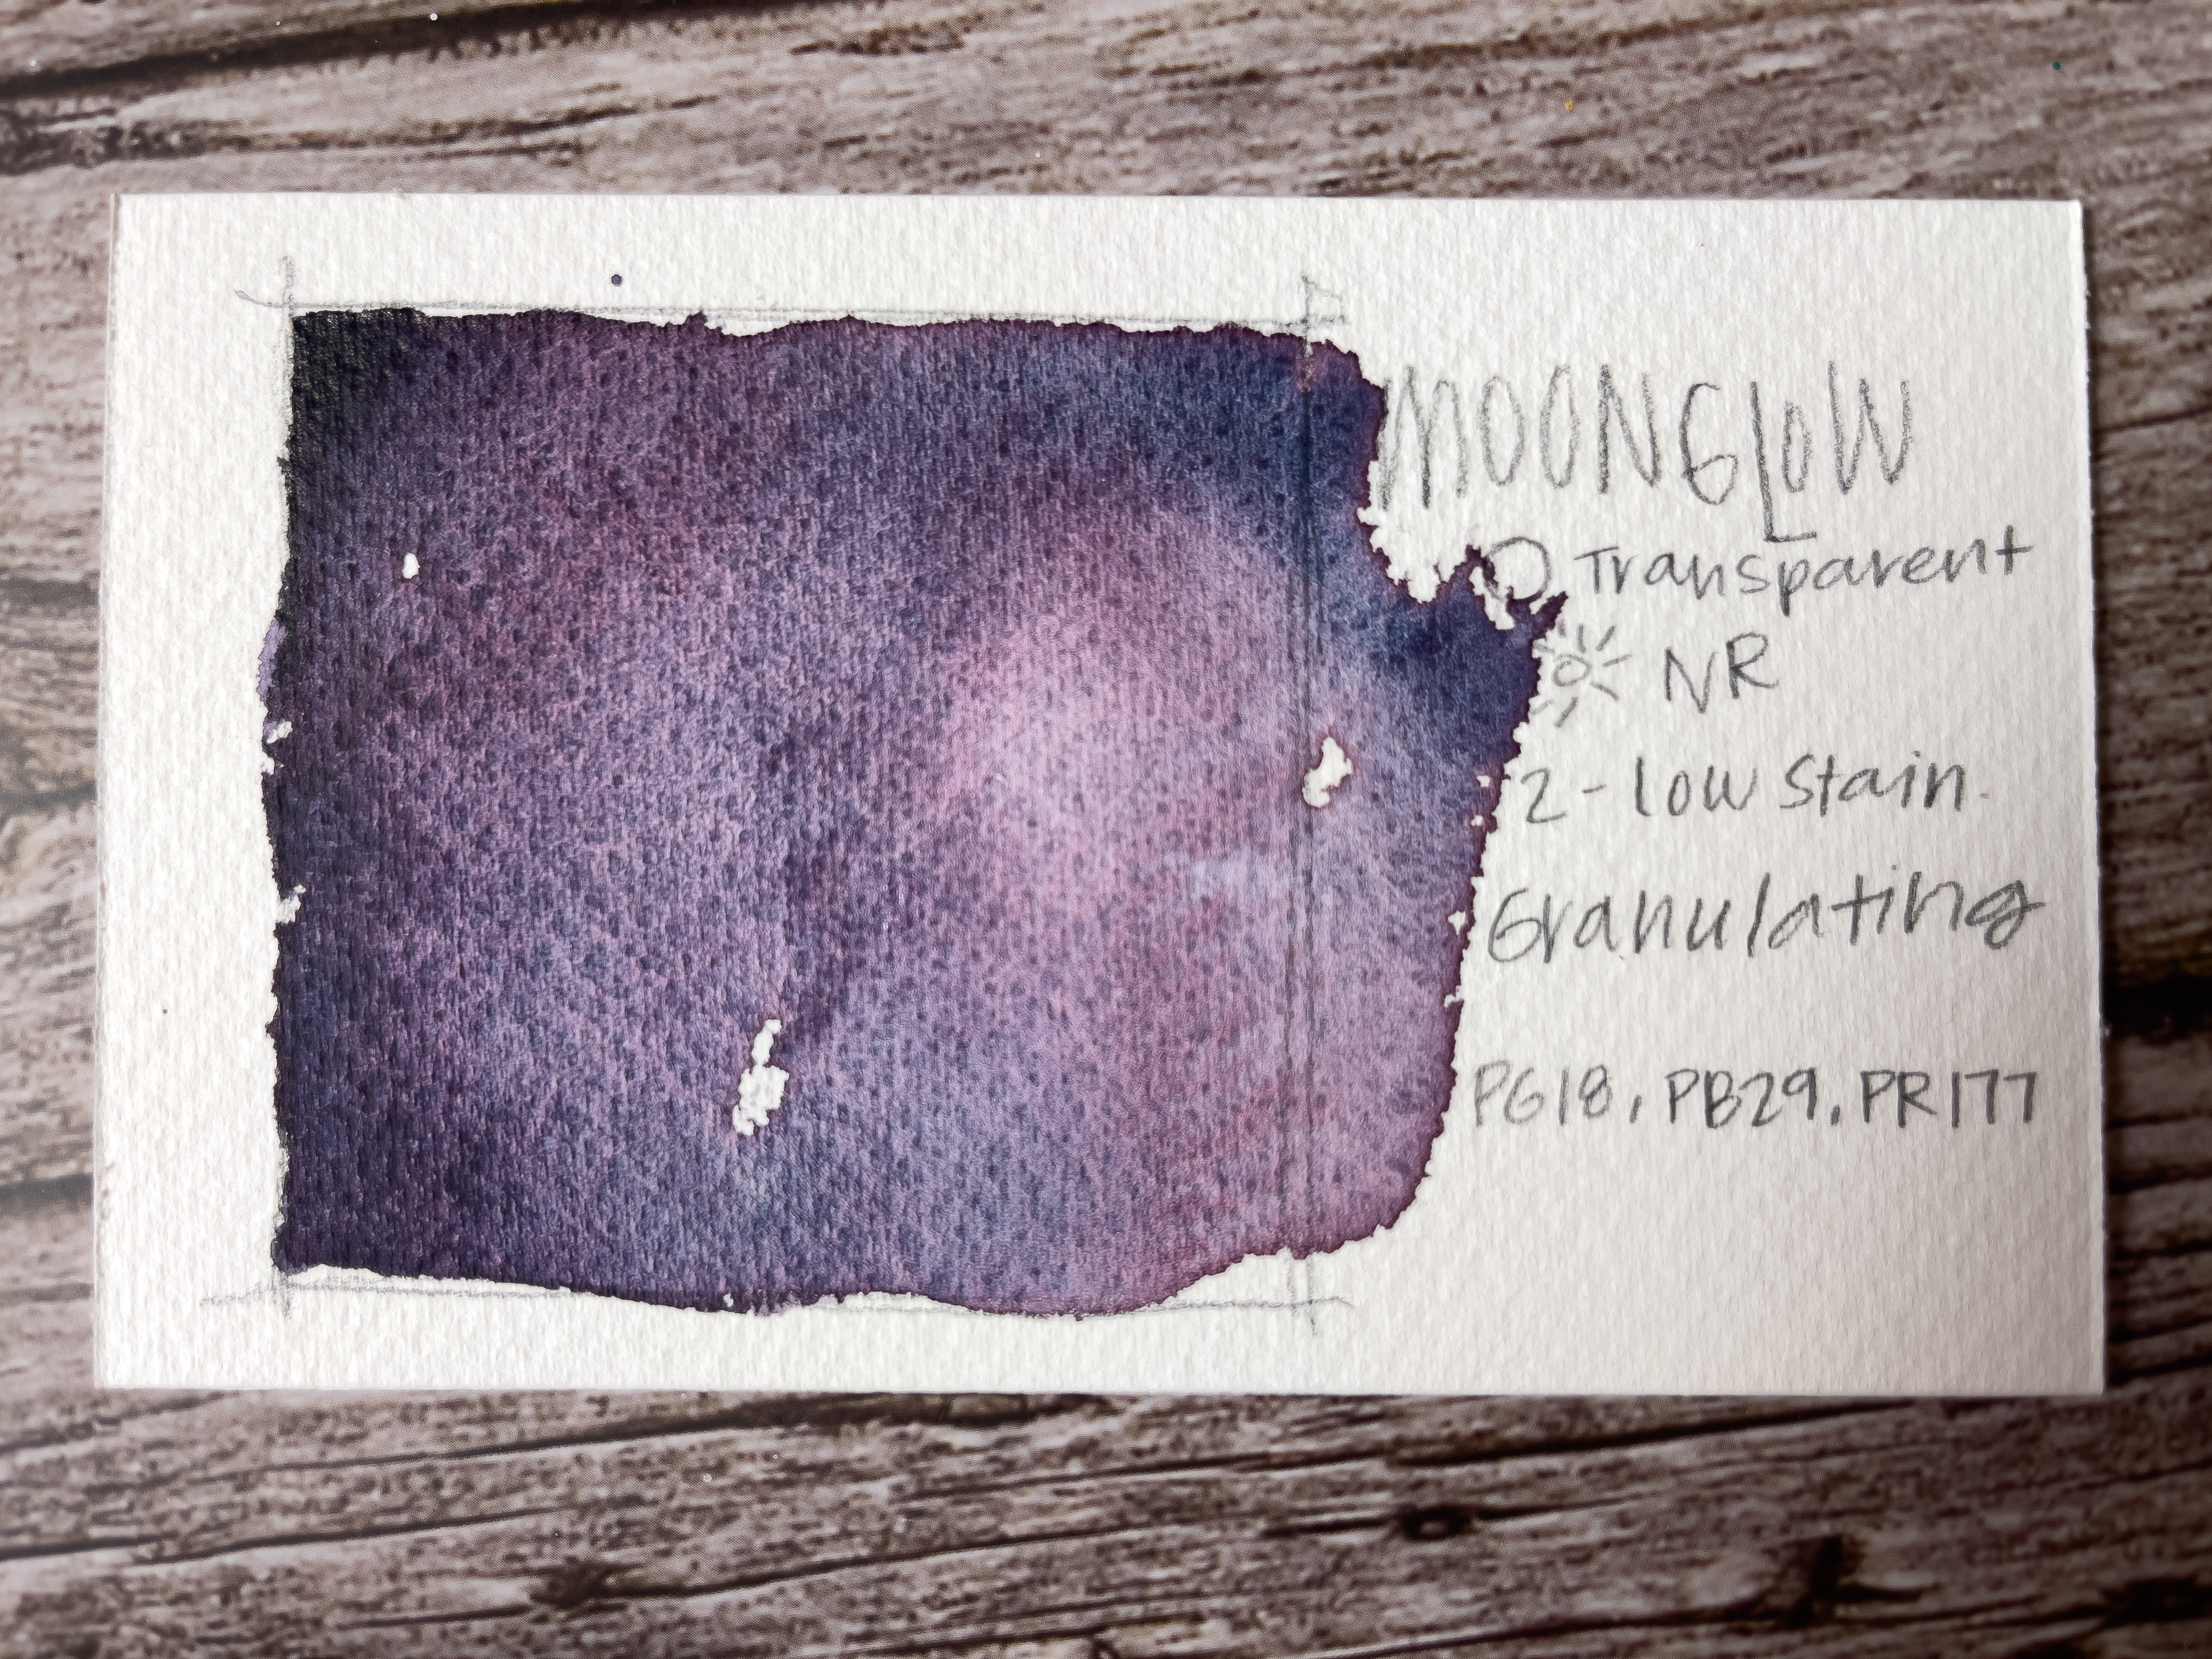 MOONGLOW
Transparent
NR
2 - Low Stain.
Granulating
PG18, PB29, PR177